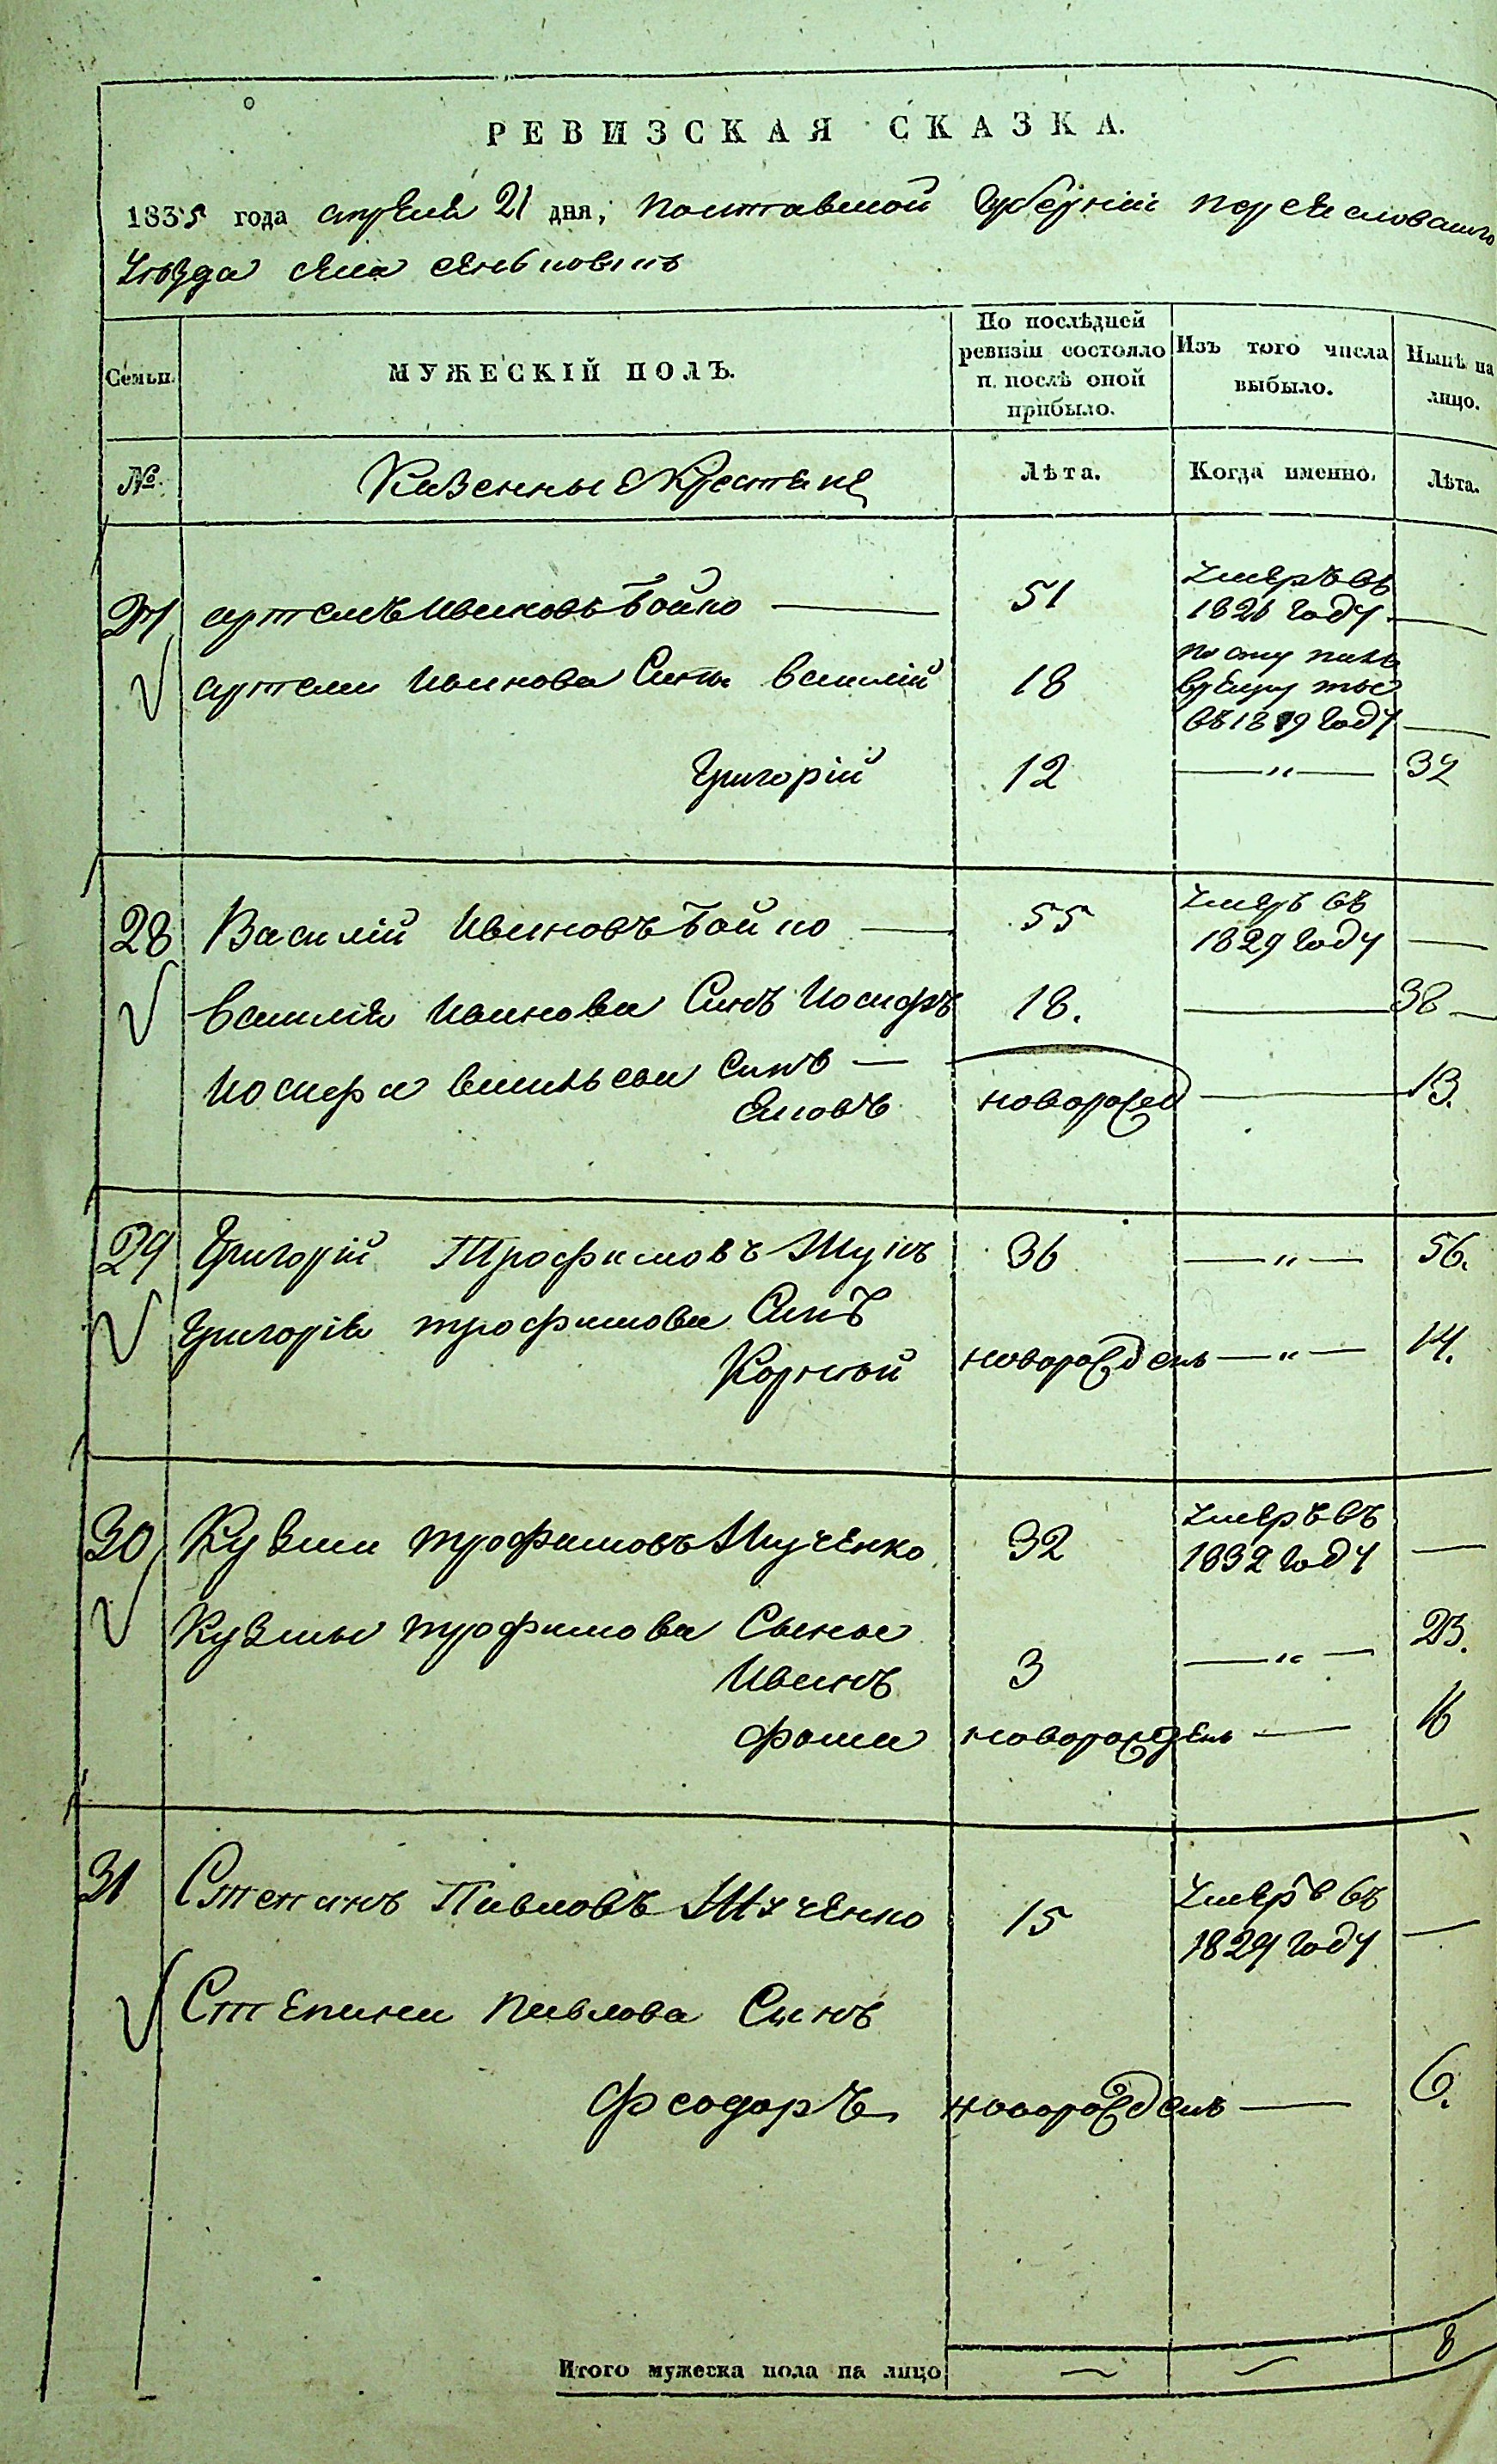 РЕВИЗСКАЯ СКАЗКА.
1835 года апреля 21 дня, Полтавской Губернии Переяславского
Уѣзда села
Семьи.
МУЖЕСКІЙ ПОЛЪ.
По послѣдней ревизіи состояло и послѣ оной прибыло.
Изъ того числа выбыло.
Нынѣ на лицо.
№.
Казенные Крестяне
Лѣта.
Когда именно.
Лѣта.
27 Артемъ Ивановъ Бойко — 51 Умеръ въ 1826 Году —
Артема Иванова Сынъ Василій 18 въ 1819 Году —
Григорій 12 — " — 32
28 Василій Ивановъ Бойко — 55 Умеръ въ 1829 Году —
Василія Иванова Сынъ Иосифъ 18. — 38 —
Иосифа Сынъ — новорожд — 13.
29 Григорій Трофимовъ 36 — " — 56.
Григорія трофимова Сынъ
Корней новорожденъ — " — 14.
30 Кузма трофимовъ 32 Умеръ въ 1832 Году —
Кузмы трофимова Сыны
Иванъ 3 — " — 23.
Фома новорожденъ — 16
31 Степанъ Павловъ 15 Умеръ въ 1829 Году —
Степана Павлова Сынъ
Феодоръ новорожденъ — 6.
Итого мужеска пола на лицо — — 8